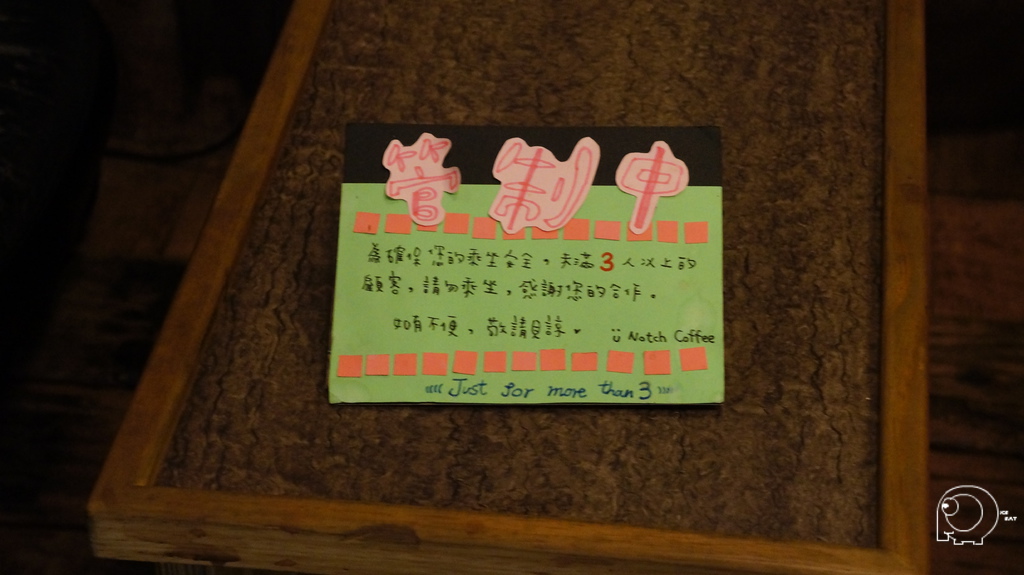 管制中
為確保您的乘坐安全，未滿3人以上的
顧客，請勿乘坐，感謝您的合作。
如有不便，敬請見諒。 Notch Coffee
Just for more than 3
ICE
EAT